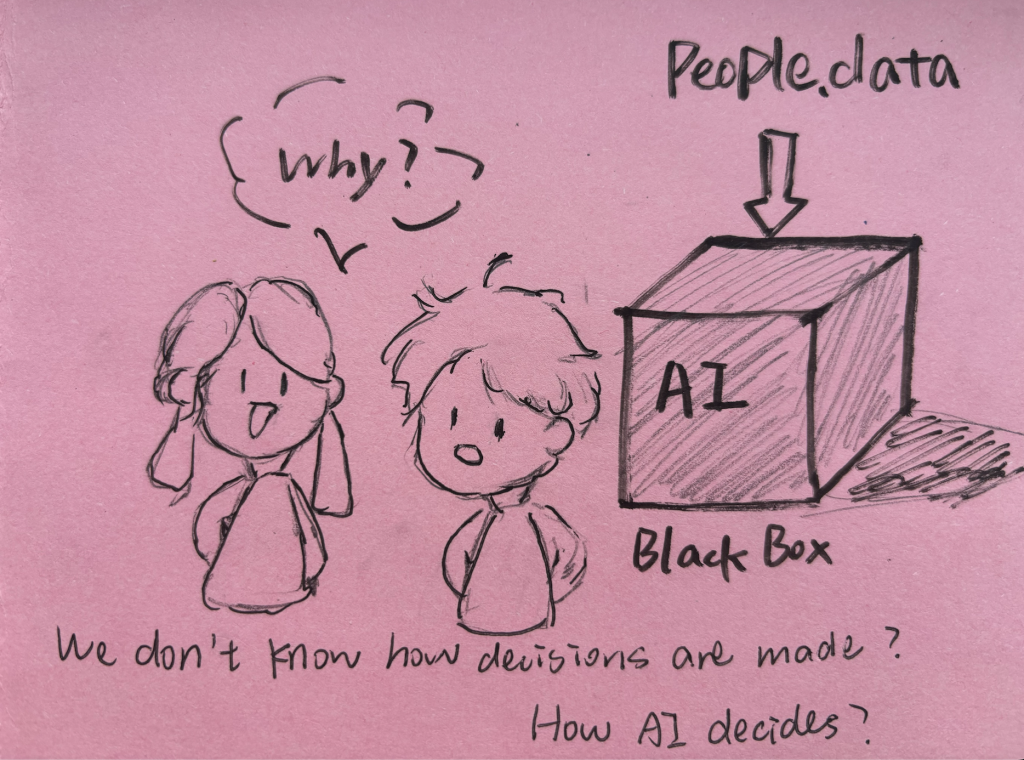 People.data
Why?
AI
Black Box
We don't know how decisions are made?
How AI decides?